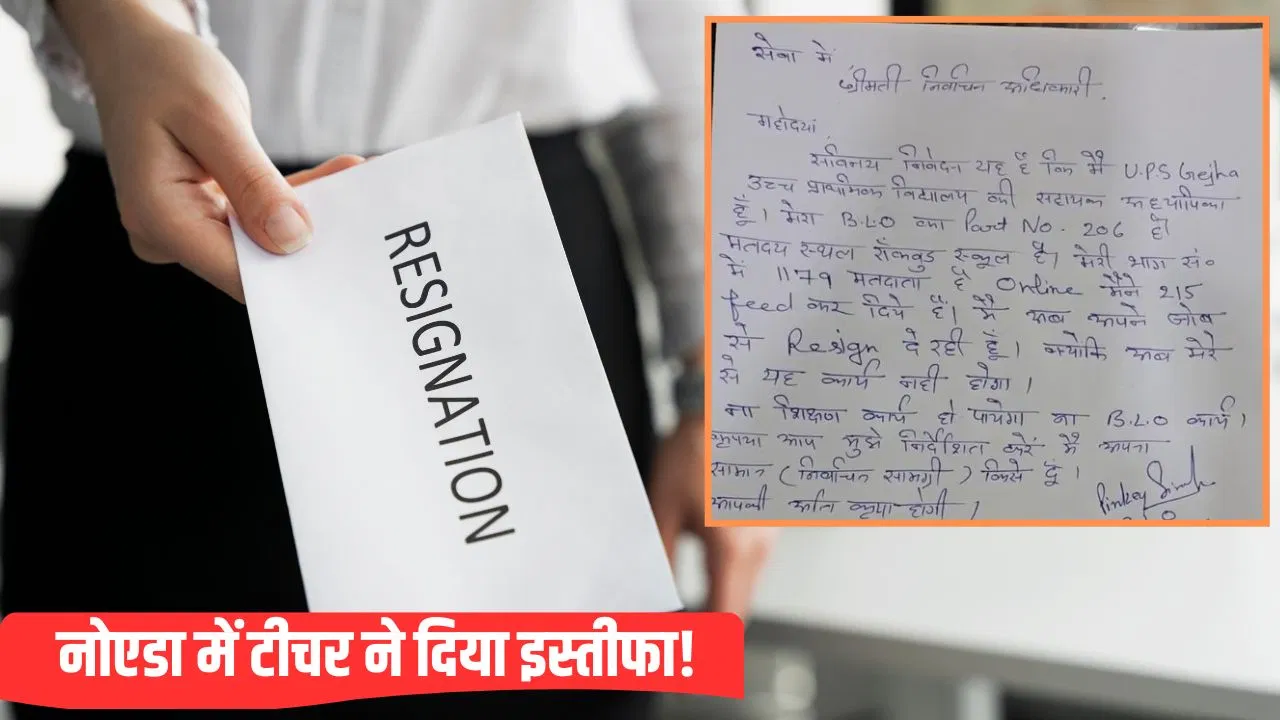 RESIGNATION
सेवा में
श्रीमती निर्वाचन अधिकारी.
महोदया,
सविनय निवेदन यह है कि मैं U.P.S Gejha
उच्च प्राथमिक विद्यालय की सहायक अध्यापिका
हूँ। मेरा B.L.O का Part No. 206 है।
मतदय स्थल रॉकवुड स्कूल है। मेरी भाग सं०
में 1179 मतदाता है Online मैंने 215
feed कर दिये हैं। मैं अब अपने जोब
से Resign दे रही हूँ। क्योकि अब मेरे
से यह कार्य नही होगा।
ना शिक्षण कार्य हो पायेगा ना B.L.O कार्य।
कृपया आप मुझे निर्देशित करें मैं अपना
सामान (निर्वाचन सामग्री) किसे दूं।
आपकी अति कृपा होगी।
Pinkey Singh
नोएडा में टीचर ने दिया इस्तीफा!